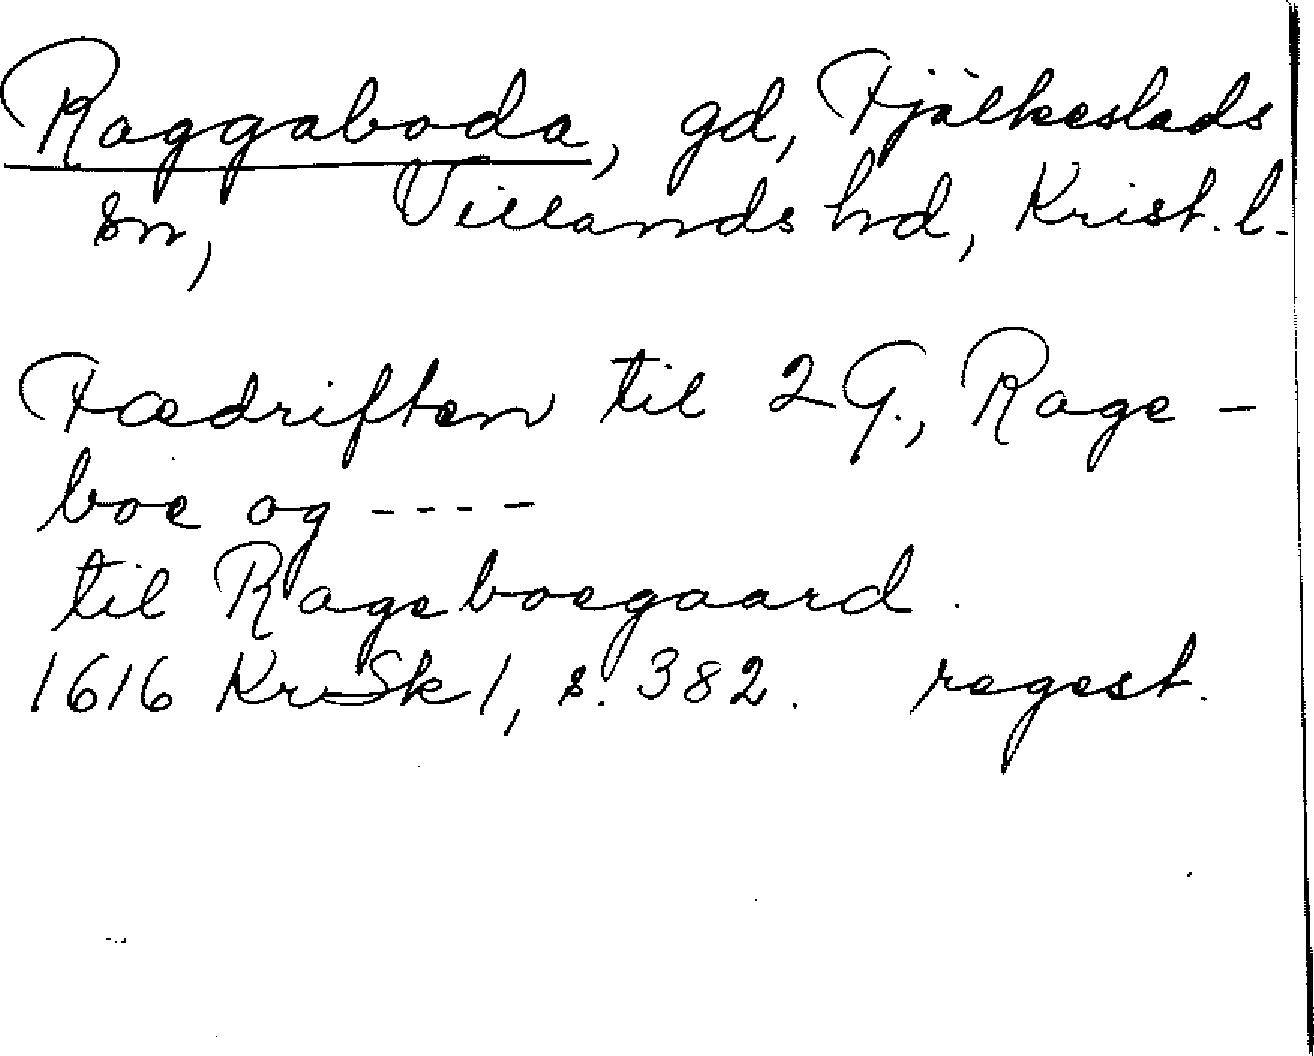 Raggaboda, gd, Fjälkestads
sn, Villands hd, Krist. l.
Fædriften til 2 G., Rage-
boe og ----
til Rageboegaard.
1616 KrSk 1, s. 382. regest.